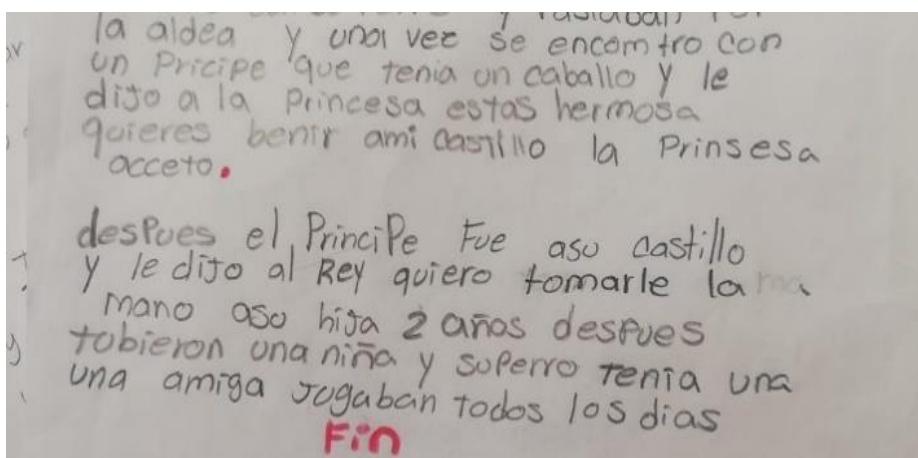 y
la aldea y una vez se encomtro con
un Pricipe que tenia un caballo y le
dijo a la Princesa estas hermosa
quieres benir ami castillo la Prinsesa
acceto.
despues el Principe Fue aso castillo
y le dijo al Rey quiero tomarle la ma
mano aso hija 2 años despues
tobieron una niña y superro tenia una
una amiga Jugaban todos los dias
Fin